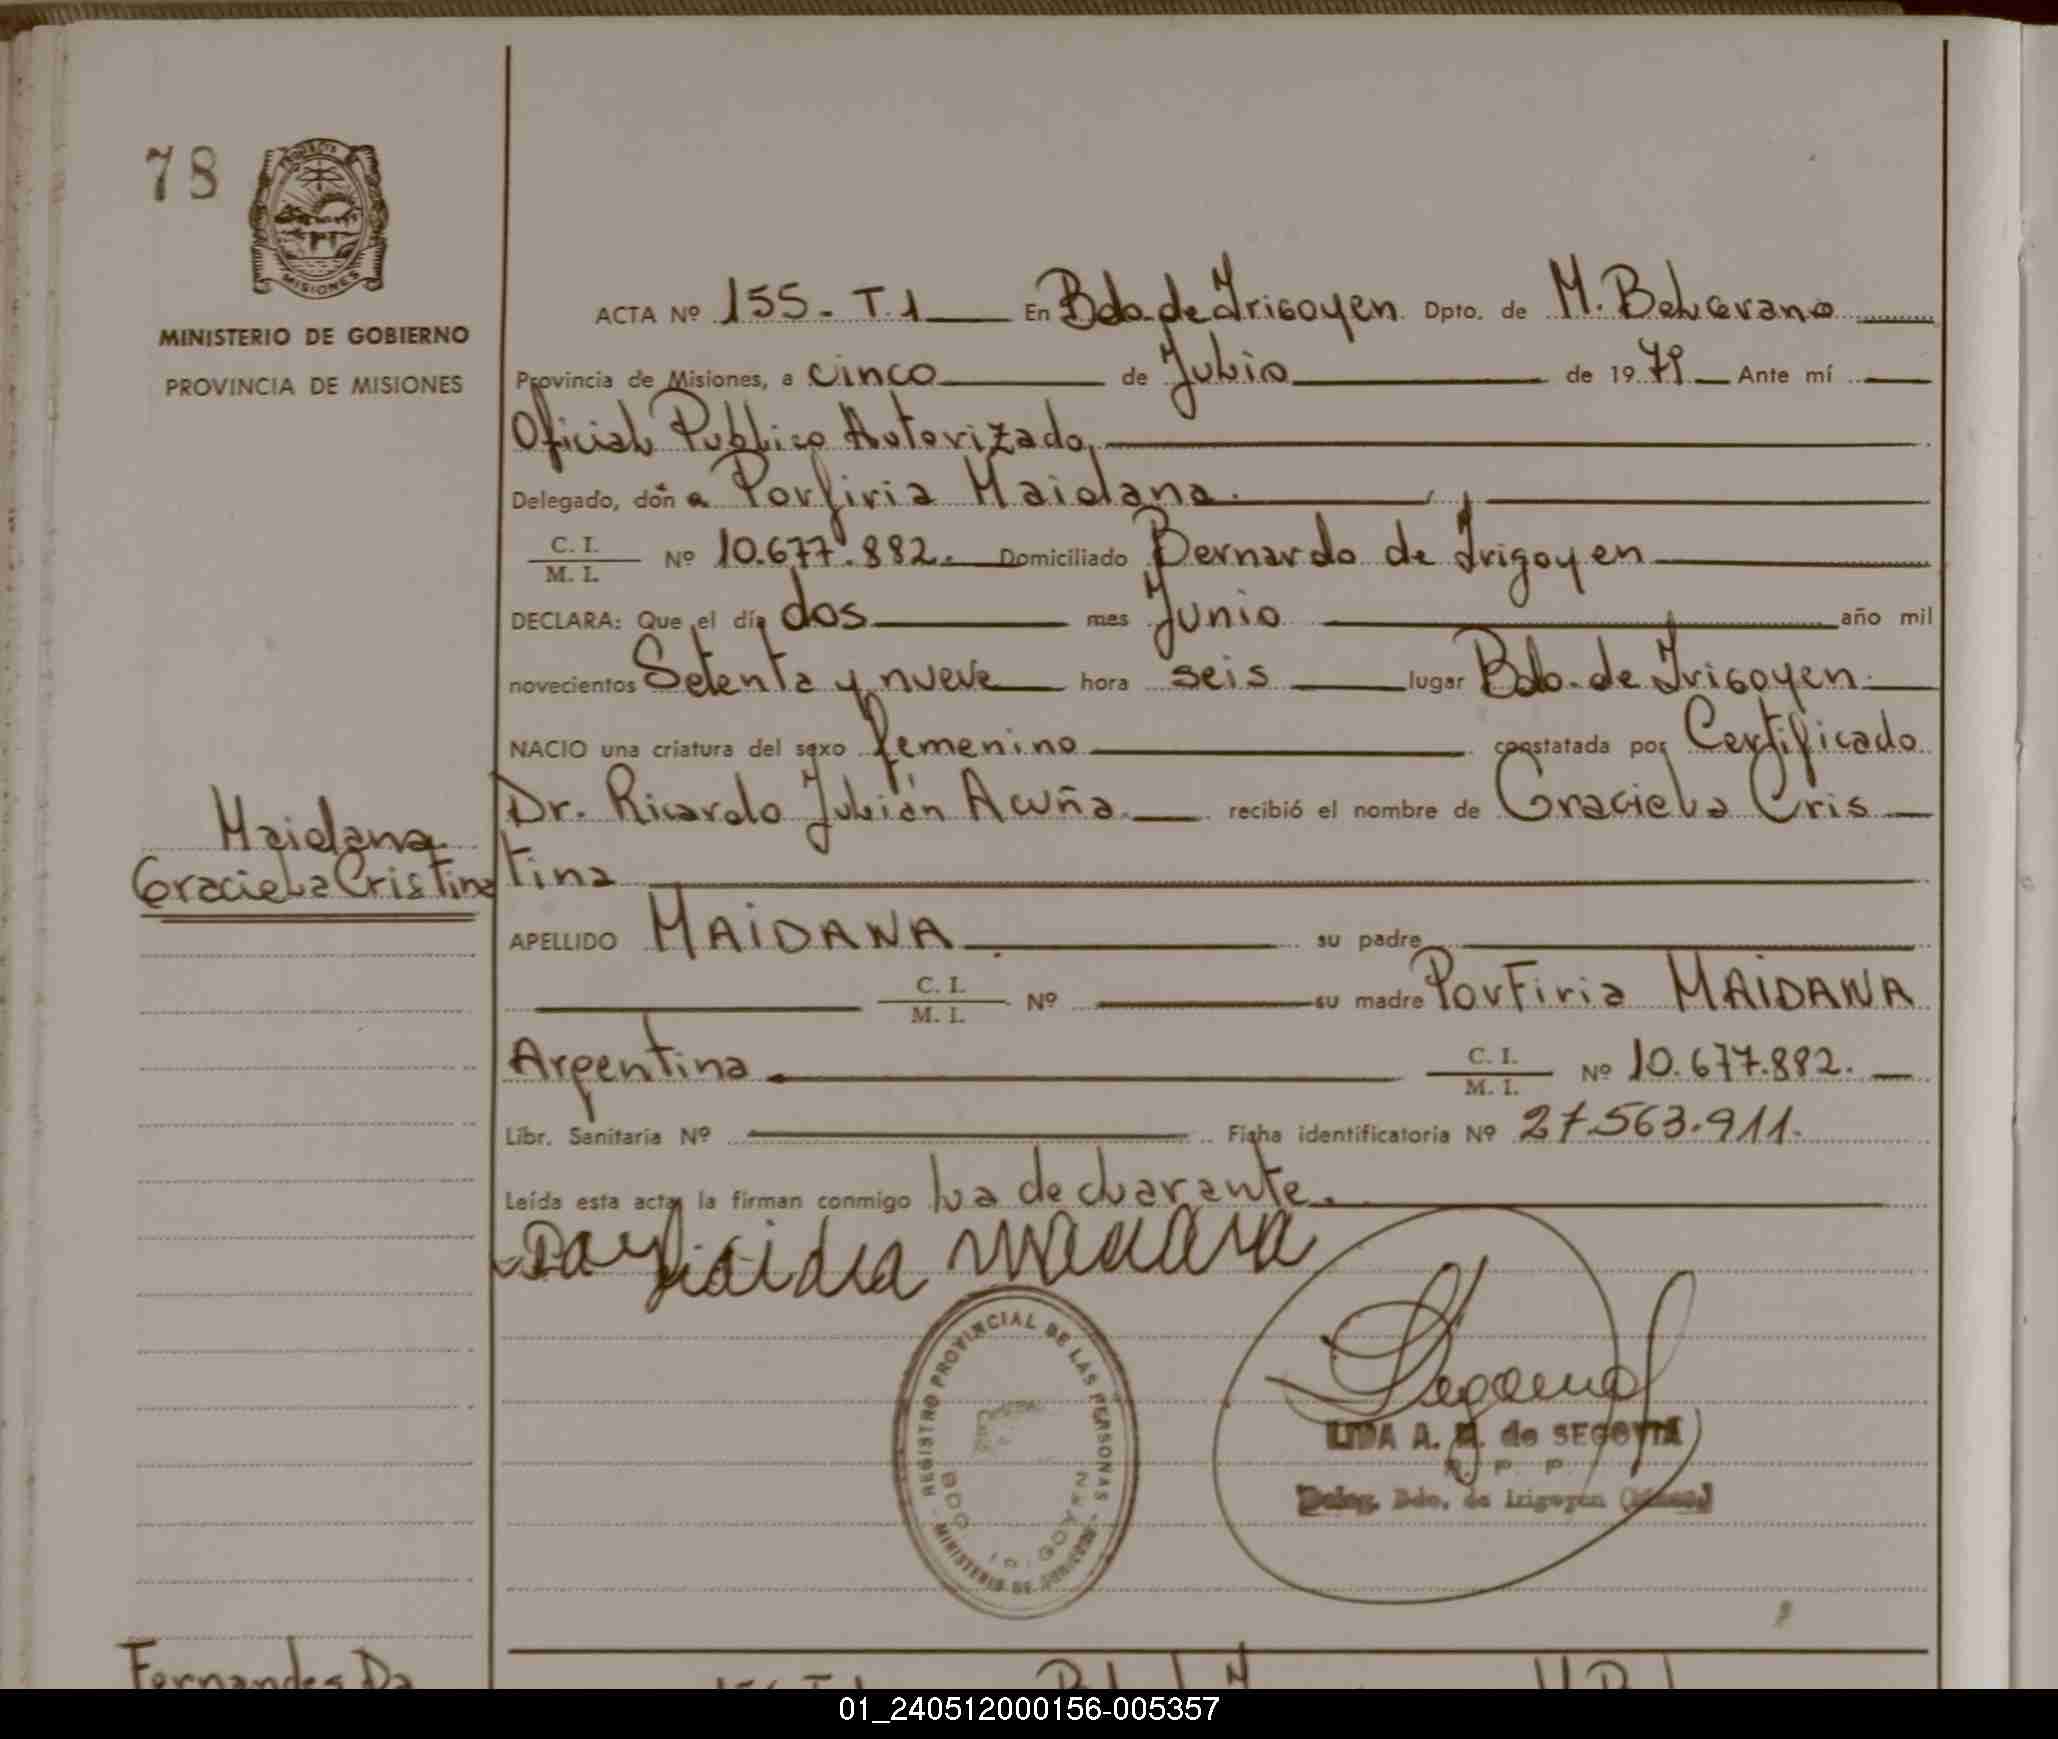 78
MISIONES
MINISTERIO DE GOBIERNO
PROVINCIA DE MISIONES
ACTA Nº 155- T.1 En Bdo. de Irigoyen Dpto. de M. Belgrano
Provincia de Misiones, a cinco de Julio de 1979 Ante mí
Oficial Publico Autorizado
Delegado, don a Porfiria Maidana.
C. I.
M. I. Nº 10.677.882. Domiciliado Bernardo de Irigoyen
DECLARA: Que el día dos mes Junio año mil
novecientos Setenta y nueve hora seis lugar Bdo. de Irigoyen
NACIO una criatura del sexo femenino constatada por Certificado
Dr. Ricardo Julián Acuña recibió el nombre de Graciela Cris
tina
Maidana
Graciela Cristina
APELLIDO MAIDANA su padre
C. I.
M. I. Nº su madre Porfiria MAIDANA
Argentina C. I.
M. I. Nº 10.677.882.
Libr. Sanitaria Nº Ficha identificatoria Nº 27.563.911.
Leída esta acta, la firman conmigo la declarante.
REGISTRO PROVINCIAL DE LAS PERSONAS
MINISTERIO DE
BDO IRIGOYEN
LIDA A. de SEGOVIA
Deleg. Bdo. de Irigoyen
Fernandes Da
01_240512000156-005357